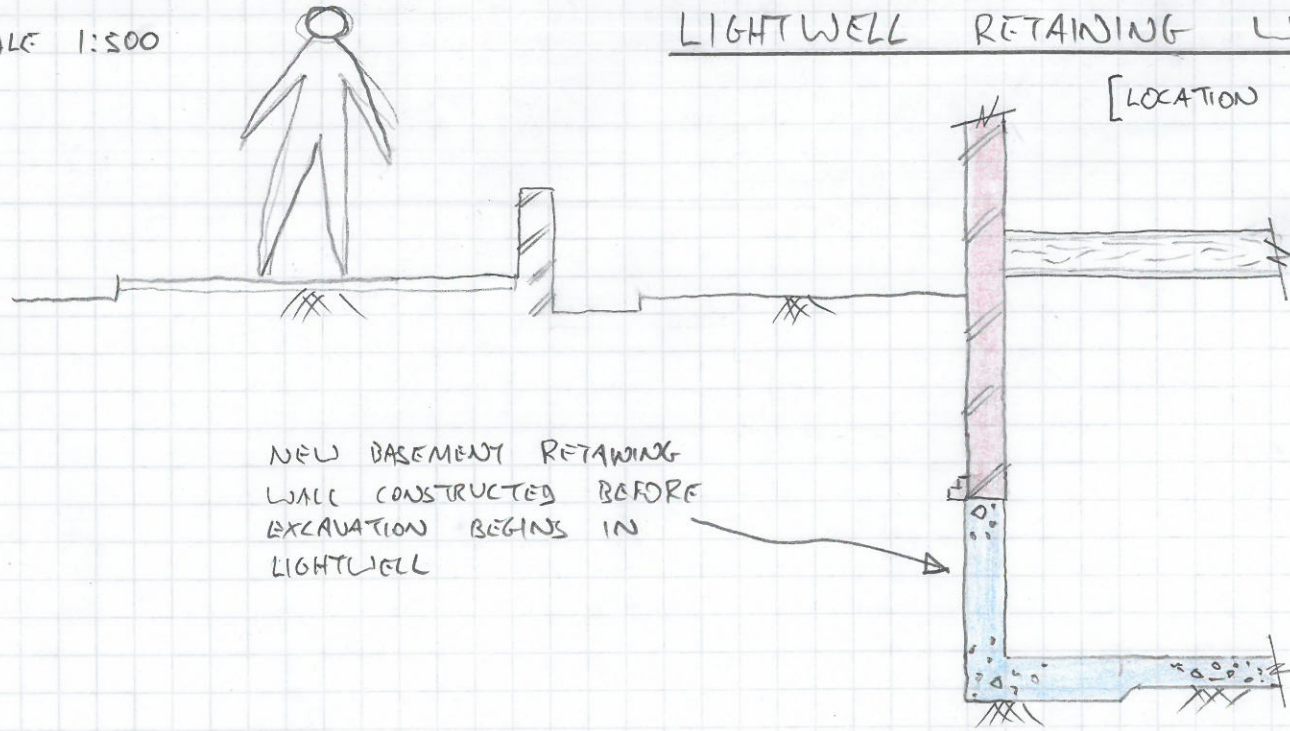 ALE 1:500
LIGHTWELL RETAINING
[LOCATION
NEW BASEMENT RETAINING
WALL CONSTRUCTED BEFORE
EXCAVATION BEGINS IN
LIGHTWELL